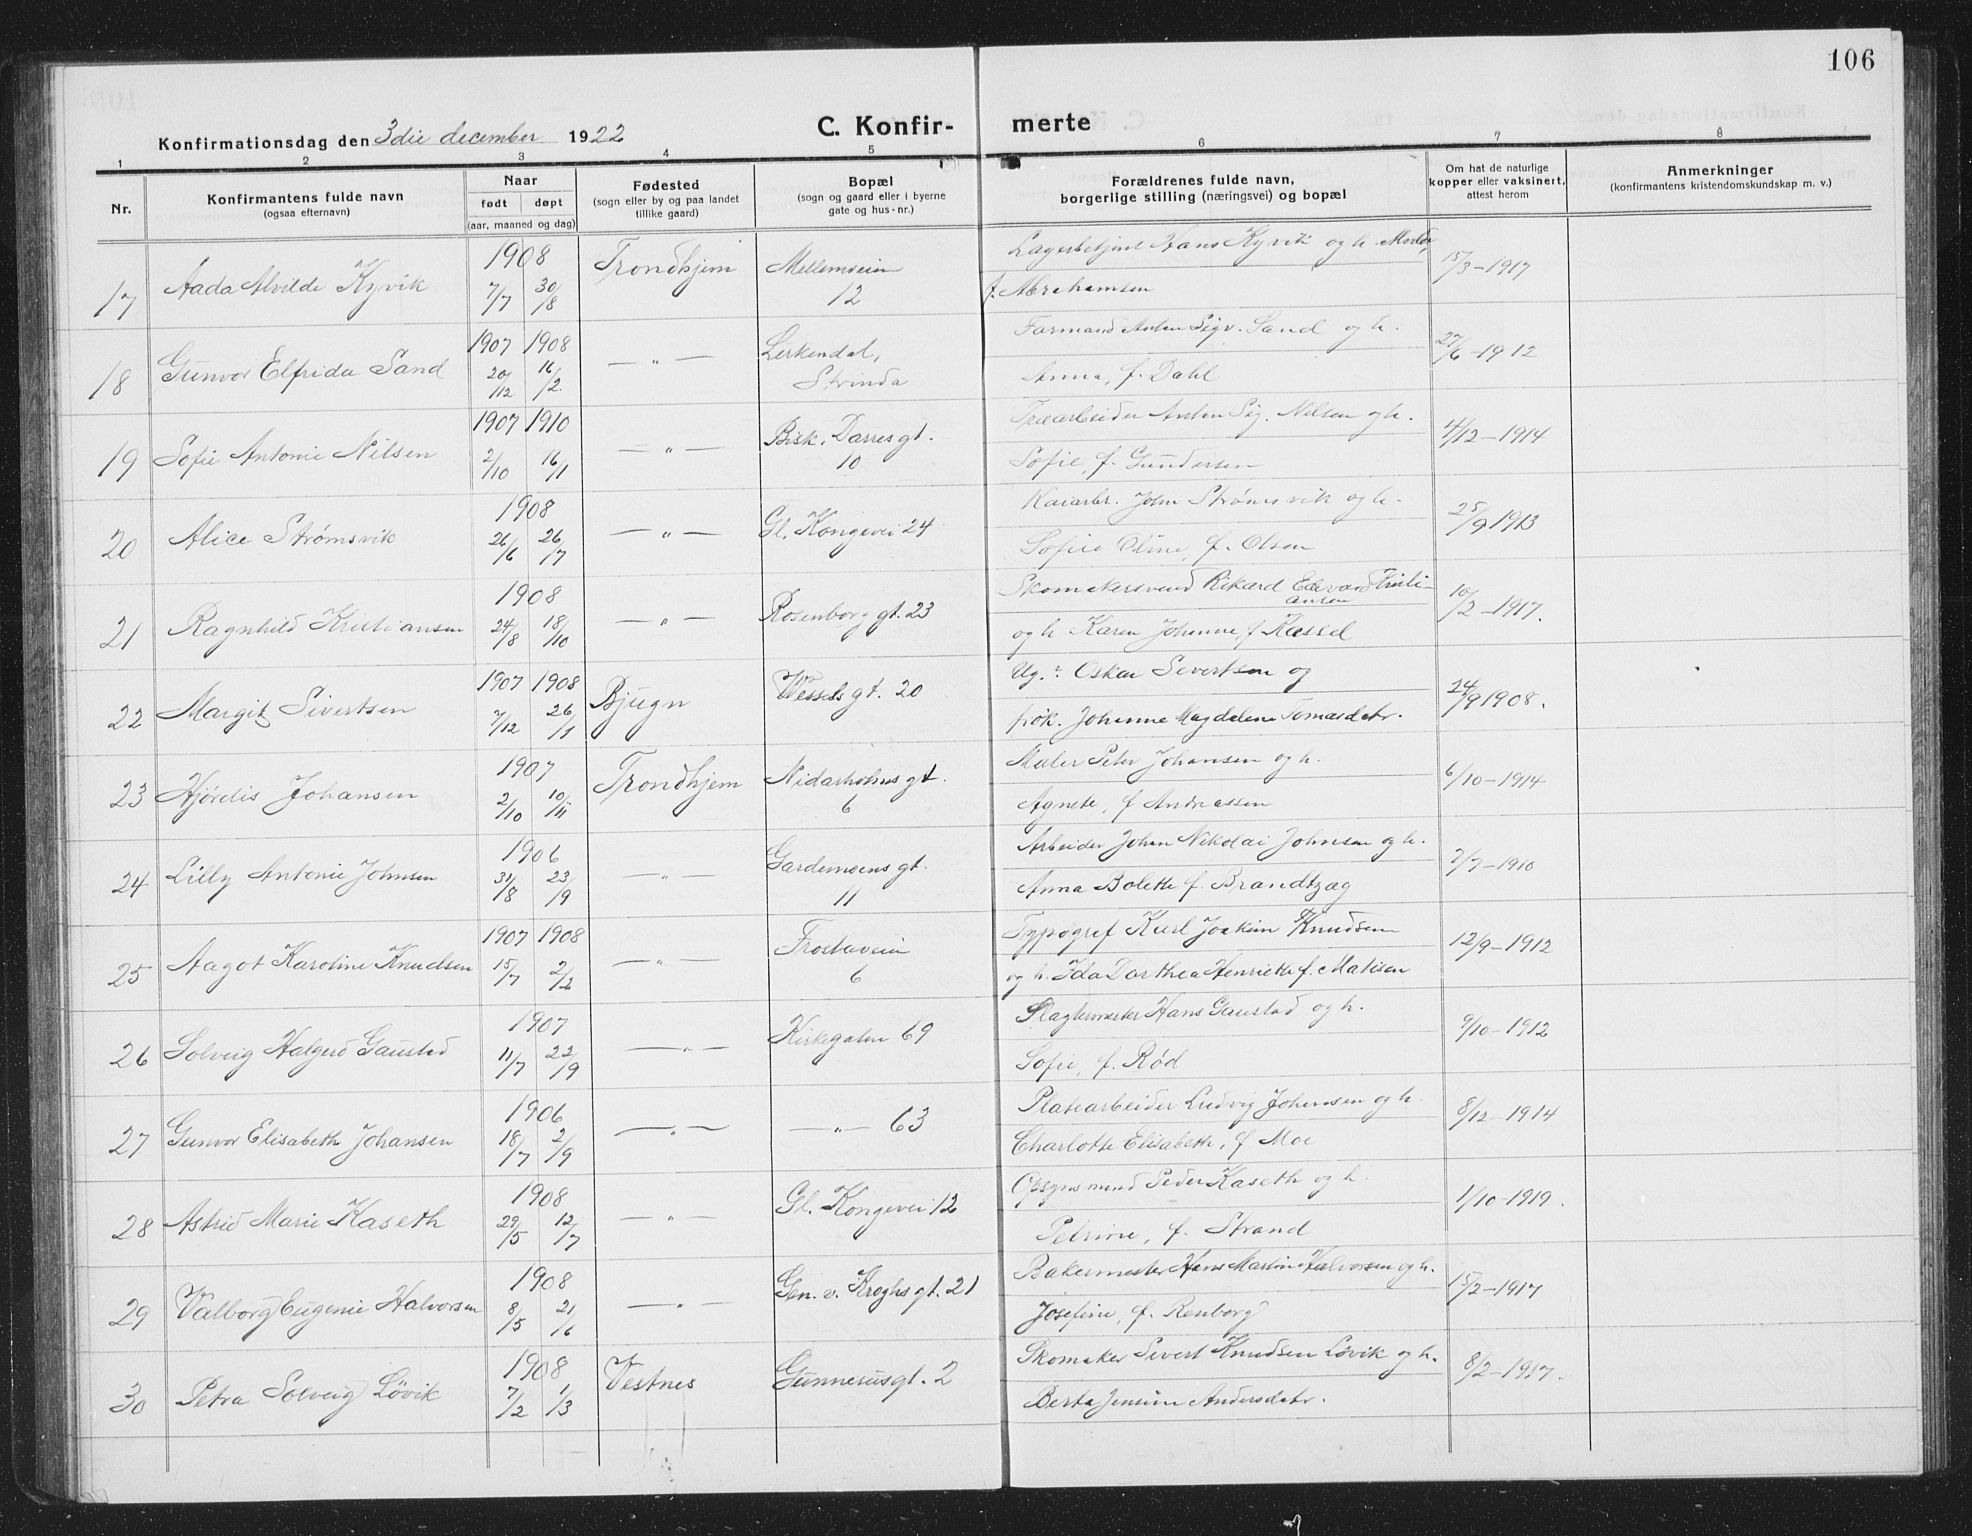 106
Konfirmationsdag den 3die december 1922
C. Konfir- merte
1 2 3 4 5 6 7 8
Nr.
Konfirmantens fulde navn
(ogsaa efternavn)
Naar
født døpt
(aar, maaned og dag)
Fødested
(sogn eller by og paa landet
tillike gaard)
Bopæl
(sogn og gaard eller i byerne
gate og hus-nr.)
Forældrenes fulde navn,
borgerlige stilling (næringsvei) og bopæl
Om hat de naturlige
kopper eller vaksinert,
attest herom
Anmerkninger
(konfirmantens kristendomskundskap m. v.)
1908 Trondhjem Mellemveien Lagerbetjent Hans Kyvik og h.
17 Aada Alvilde Kyvik 7/7 30/8 12 f. Abrahamsen 15/3-1917
1907 1908 Lerkendal, Formand Anton Sigv. Sand og h.
18 Gunvor Elfrida Sand 20/12 16/2 —„— Strinda Anna, f. Dahl 27/6-1912
1907 1910 Bisk. Darres gt. Træarbeider Anton Sig. Nilsen og h.
19 Sofie Antonie Nilsen 2/10 16/1 —„— 10 Sofie, f. Gundersen 4/12-1914
1908 Kaiarbr. John Strømsvik og h.
20 Alice Strømsvik 26/6 26/7 —„— Gl. Kongevei 24 Sofie Oline, f. Olsen 25/9 1913
1908 Skomakersvend Rikard Edevard Kristi-
ansen
21 Ragnhild Kristiansen 24/8 18/10 —„— Rosenborg gt. 23 og h. Karen Johanne, f. Kassel 10/2-1917.
1907 1908 Ug. Oskar Sivertsen og
22 Margit Sivertsen 7/12 26/1 Bjugn Wessels gt. 20 frøk. Johanne Magdalene Tomasdatr. 24/9 1908.
1907 Trondhjem Nidarholms gt. Maler Peter Johansen og h.
23 Hjørdis Johansen 2/10 10/11 6 Agnete, f Andreassen 6/10-1914
1906 Gardemoens gt. Arbeider Johan Nikolai Johnsen og h.
24 Lilly Antonie Johnsen 31/8 23/9 —„— 11 Anna Bolette f. Brandtzæg 7/7-1910
1907 1908 Frostaveien Typograf Karl Joakim Knudsen
25 Aagot Karoline Knudsen 15/7 2/2 —„— 6 og h. Ida Dorthea Henriette f. Matisen 12/9-1912
1907 Slagtermester Hans Gaustad og h.
26 Solveig Halgerd Gaustad 11/7 22/9 —„— Kirkegaten 69 Sofie, f. Rød 9/10-1912
1906 Platearbeider Ludvig Johansen og h.
27 Gunvor Elisabeth Johansen 18/7 2/9 —„— —„— 63 Charlotte Elisabeth, f Moe 8/12-1914
1908 Opsynsmand Peder Kaseth og h.
28 Astrid Marie Kaseth 29/5 12/7 —„— Gl. Kongevei 12 Petrine, f. Strand 1/10-1919.
1908 Bakermester Hans Martin Halvorsen og h.
29 Valborg Eugenie Halvorsen 8/5 21/6 —„— Gen. v. Kroghs gt. 21 Josefine, f. Renborg 15/2-1917
1908 Skomaker Sivert Knudsen Løvik og h.
30 Petra Solveig Løvik 7/2 1/3 Vestnes Gunnerusgt. 2 Berta Jensine Andersdatr. 8/2-1917.